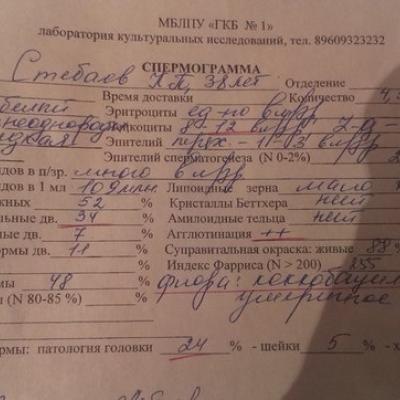 МБЛПУ «ГКБ № 1»
лаборатория культуральных исследований, тел. 89609323232
СПЕРМОГРАММА
38 лет Отделение
белый Время доставки Количество 4,
неоднородн Эритроциты ед-но в п/зр
8-12 в п/зр
Эпителий 1-3 в п/зр
Эпителий сперматогенеза (N 0-2%) 2
идов в п/зр. много в п/зр
идов в 1 мл 109 млн. Липоидные зерна мало
жных 52 % Кристаллы Беттхера нет
льные дв. 34 % Амилоидные тельца нет
ые дв. 7 % Агглютинация ++
ормы дв. 11 % Суправитальная окраска: живые 88 %
% Индекс Фарриса (N > 200) 255
мы 48 % Флора: коккобацил
ы (N 80-85 %) % умеренное
ормы: патология головки 24 % - шейки 5 % - х